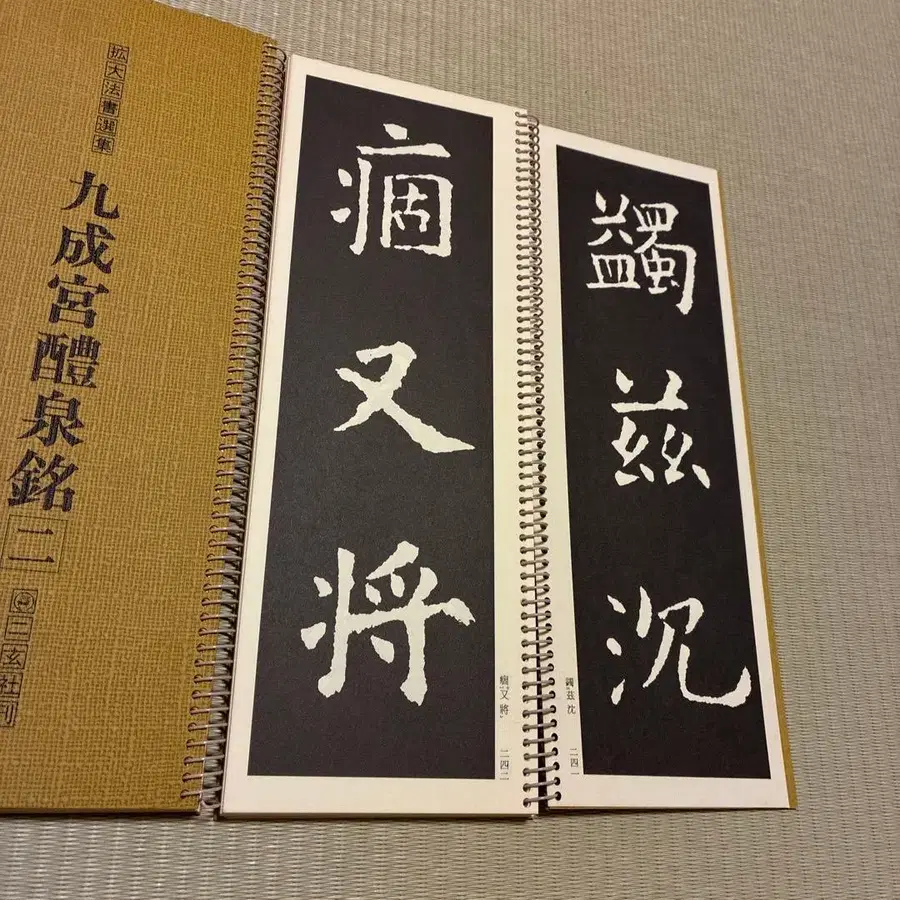 拡大法書選集
九成宮醴泉銘
二
二玄社刊
蠲兹沉
蠲茲沈
二四一
痼又将
痼又將
二四二